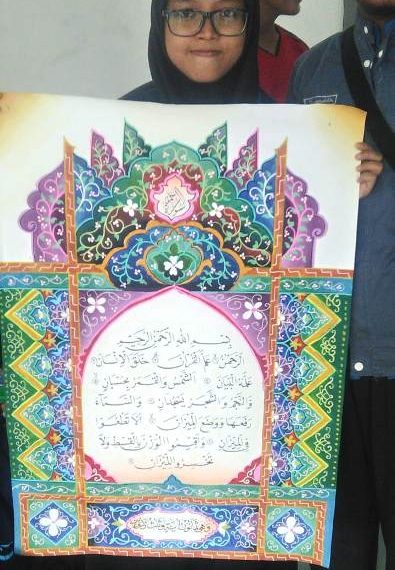 بسم الله الرحمن الرحيم
الرحمن علم القرآن خلق الإنسان
علمه البيان الشمس والقمر بحسبان
والنجم والشجر يسجدان والسماء
رفعها ووضع الميزان ألا تطغوا
في الميزان وأقيموا الوزن بالقسط ولا
تخسروا الميزان